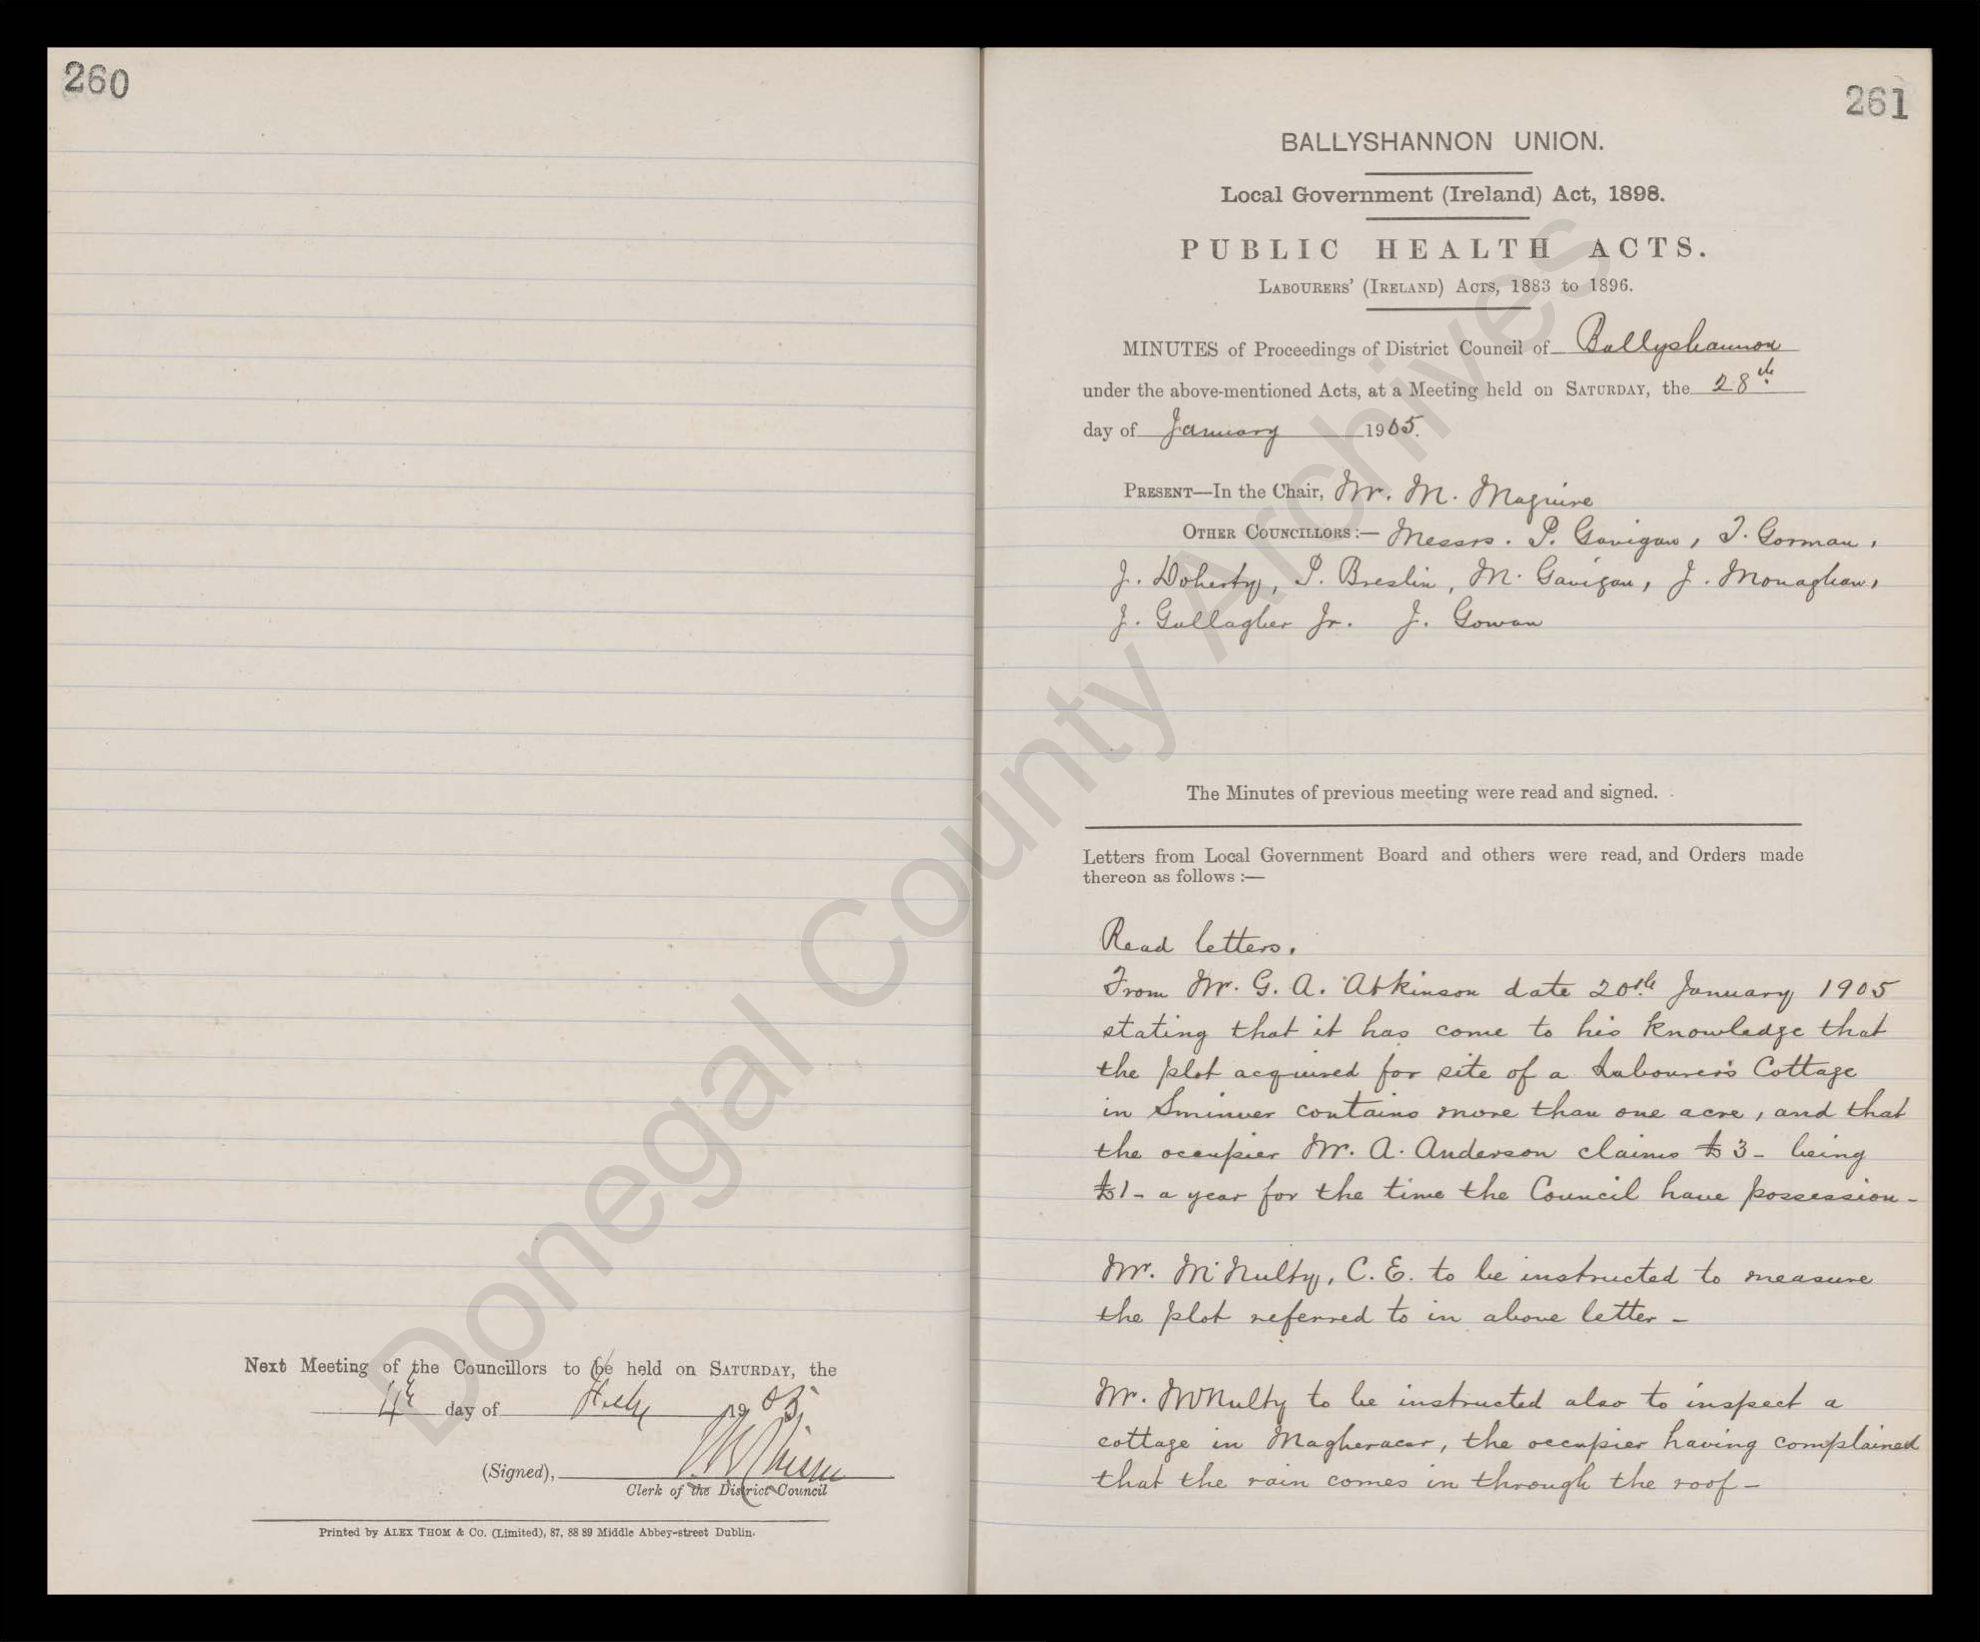 260
Next Meeting of the Councillors to be held on SATURDAY, the
4th day of Feby 1905
(Signed),
Clerk of the District Council
Printed by ALEX THOM & Co. (Limited), 87, 88 89 Middle Abbey-street Dublin.
261
BALLYSHANNON UNION.
Local Government (Ireland) Act, 1898.
PUBLIC HEALTH ACTS.
LABOURERS' (IRELAND) ACTS, 1883 to 1896.
MINUTES of Proceedings of District Council of Ballyshannon
under the above-mentioned Acts, at a Meeting held on SATURDAY, the 28th
day of January 1905.
PRESENT—In the Chair, Mr. M. Maguire
OTHER COUNCILLORS:— Messrs. P. Gavigan, T. Gorman,
J. Doherty, P. Breslin, M. Gavigan, J. Monaghan,
J. Gallagher Jr. J. Gowan
The Minutes of previous meeting were read and signed.
Letters from Local Government Board and others were read, and Orders made
thereon as follows :—
Read letters.
From Mr. G. A. Atkinson date 20th January 1905
stating that it has come to his knowledge that
the plot acquired for site of a Labourer's Cottage
in Sminver contains more than one acre, and that
the occupier Mr. A. Anderson claims £3 - being
£1 - a year for the time the Council have possession -
Mr. McNulty, C. E. to be instructed to measure
the plot referred to in above letter -
Mr. McNulty to be instructed also to inspect a
cottage in Magheracar, the occupier having complained
that the rain comes in through the roof -
Donegal County Archives